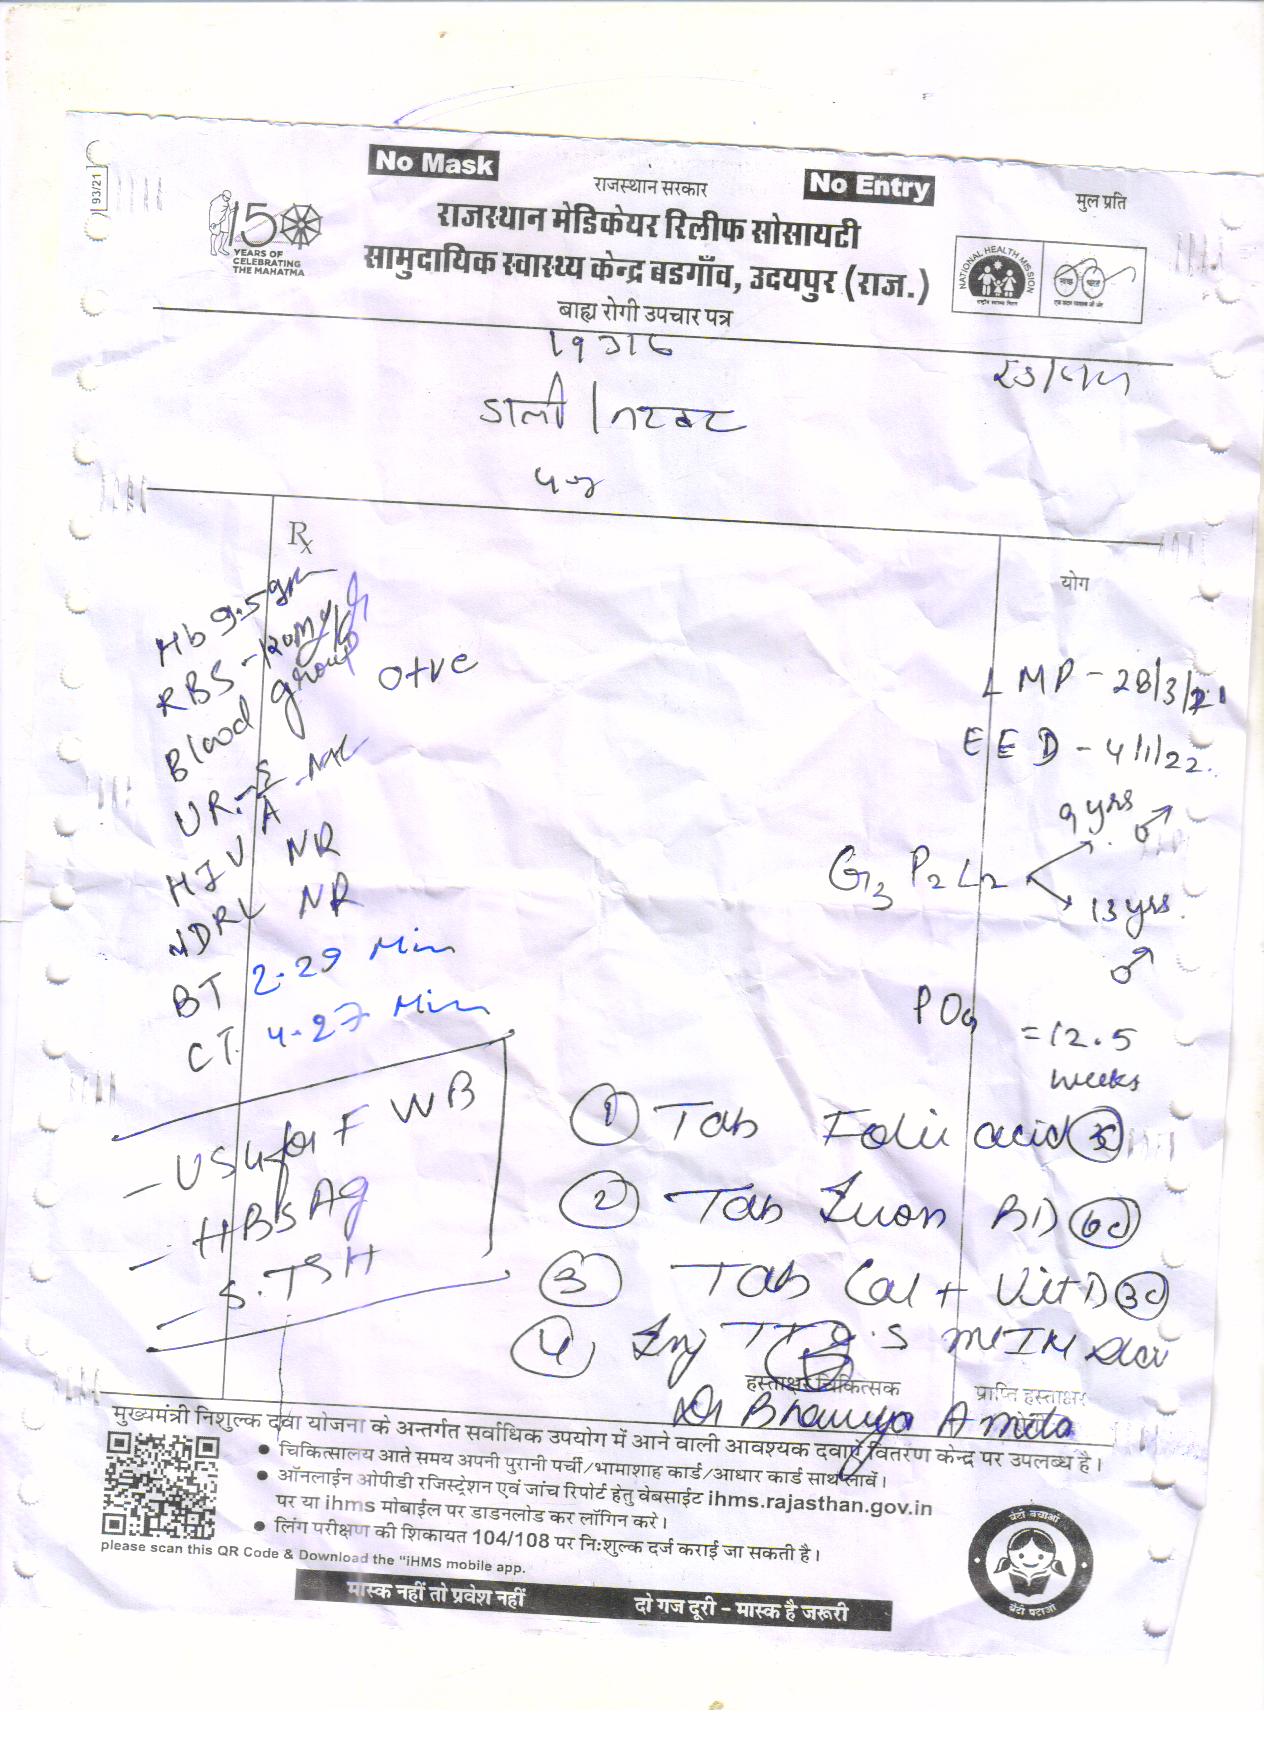 93/21
No Mask
No Entry
राजस्थान सरकार
मुल प्रति
150
YEARS OF
CELEBRATING
THE MAHATMA
राजस्थान मेडिकेयर रिलीफ सोसायटी
सामुदायिक स्वास्थ्य केन्द्र बडगाँव, उदयपुर (राज.)
NATIONAL HEALTH MISSION
बाह्य रोगी उपचार पत्र
डाली / नटवर
Rx
योग
Hb 9.5 gm
RBS - 120 mg
Blood group O+ve
UR.- S A
HIV NR
VDRL NR
BT 2-29 Min
CT. 4-27 Min
LMP - 28/3/21
EED - 4/1/22.
9 yrs ♂
G3 P2 L2
13 yrs. ♂
POG = 12.5
weeks
- USG for FWB
- HBsAg
- S.TSH
① Tab Folic acid
② Tab Iron BD 60
③ Tab Cal + Vit D 30
④ Inj TT 0.5 ml IM
हस्ताक्षर चिकित्सक
प्राप्ति हस्ताक्षर
मुख्यमंत्री निशुल्क दवा योजना के अन्तर्गत सर्वाधिक उपयोग में आने वाली आवश्यक दवाऐं वितरण केन्द्र पर उपलब्ध है।
● चिकित्सालय आते समय अपनी पुरानी पर्ची/भामाशाह कार्ड/आधार कार्ड साथ लावें।
● ऑनलाईन ओपीडी रजिस्ट्रेशन एवं जांच रिपोर्ट हेतु वेबसाईट ihms.rajasthan.gov.in
पर या ihms मोबाईल पर डाडनलोड कर लॉगिन करे।
● लिंग परीक्षण की शिकायत 104/108 पर नि:शुल्क दर्ज कराई जा सकती है।
please scan this QR Code & Download the "iHMS mobile app.
बेटी बचाओ
बेटी पढाओ
मास्क नहीं तो प्रवेश नहीं
दो गज दूरी – मास्क है जरूरी